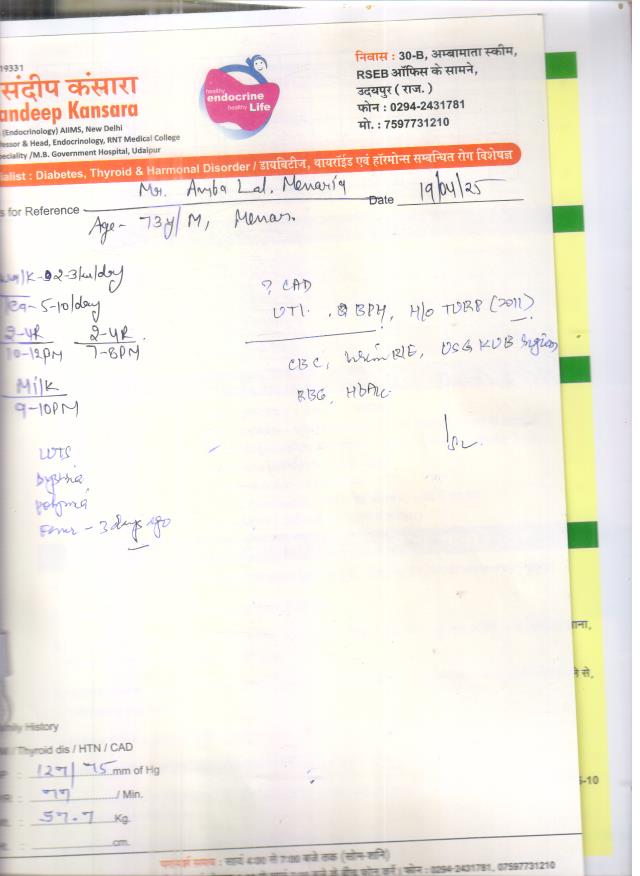 19331
संदीप कंसारा
andeep Kansara
(Endocrinology) AIIMS, New Delhi
fessor & Head, Endocrinology, RNT Medical College
peciality /M.B. Government Hospital, Udaipur
healthy
endocrine
healthy Life
निवास : 30-B, अम्बामाता स्कीम,
RSEB ऑफिस के सामने,
उदयपुर ( राज. )
फोन : 0294-2431781
मो. : 7597731210
ialist : Diabetes, Thyroid & Harmonal Disorder / डायबिटीज, थायरॉईड एवं हॉरमोन्स सम्बन्धित रोग विशेषज्ञ
s for Reference Mr. Amba Lal Menariya Date 19/04/25
Age - 73y/M, Menar.
2-3/day
Tea - 5-10/day
2-4R 2-4R
10-12PM 7-8PM
Milk
9-10PM
? CAD
UTI. BPH, H/o TURP (2011)
CBC, Urine R/E, USG KUB
RBG, HbA1c
LUTS
Dysuria
polyuria
Fever - 3 days ago
amily History
/ Thyroid dis / HTN / CAD
P : 127/75 mm of Hg
: 77 / Min.
: 57.7 Kg.
: cm.
ाना,
ने से,
-10
परामर्श समय : सायं 4:00 से 7:00 बजे तक (सोम-शनि)
फोन करें। फोन : 0294-2431781, 07597731210